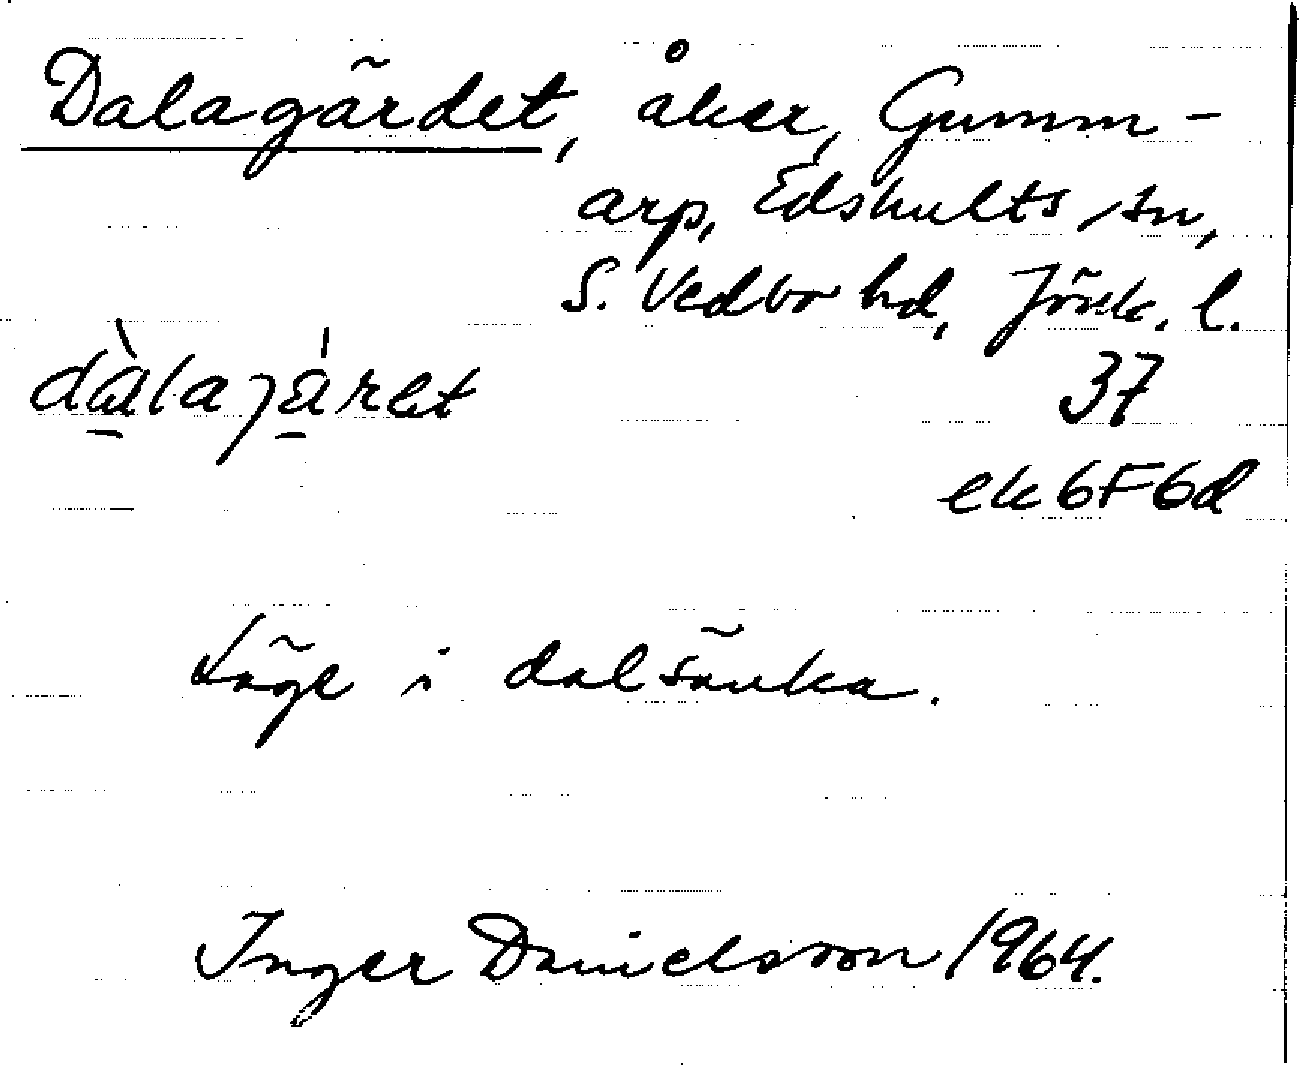 Dalagärdet, åker, Gumm-
arp, Edshults sn,
S. Vedbo hd, Jönk. l.
37
ek 6F6d
Läge i dalsänka.
Inger Danielsson 1964.